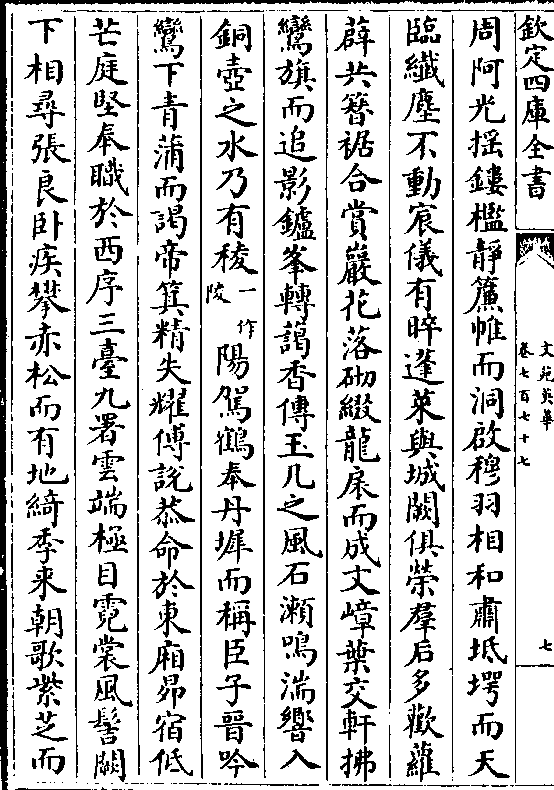 欽定四庫全書
文苑英華
卷七百七十七
七
周阿光搖鏤檻靜簾帷而洞啟穆羽相和肅坻堮而天
臨纎塵不動宸儀有睟蓬萊與城闕俱榮羣后多歡蘿
薜共簪裾合賞巖花落砌綴龍床而成文嶂葉交軒拂
鸞旗而追影鑪峯轉藹香傳玉几之風石瀨鳴湍響入
銅壺之水乃有稜一作陵陽駕鶴奉丹墀而稱臣子晉吟
鸞下青蒲而謁帝箕精失耀傅說恭命於東廂昴宿低
芒庭堅奉職於西序三臺九署雲端極目霓裳風髻闕
下相尋張良卧疾攀赤松而有地綺季來朝歌紫芝而